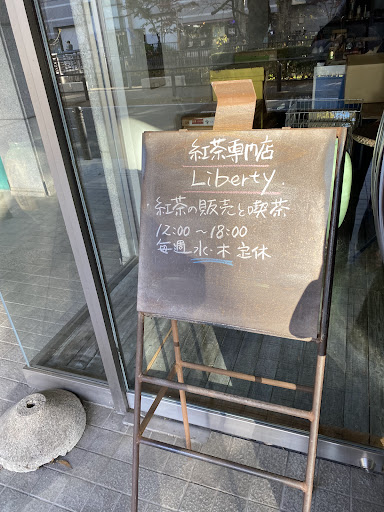 紅茶専門店
Liberty.
紅茶の販売と喫茶
12:00〜18:00
毎週 水・木 定休